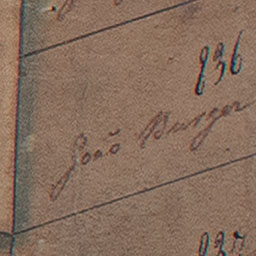 836
João Burger
837